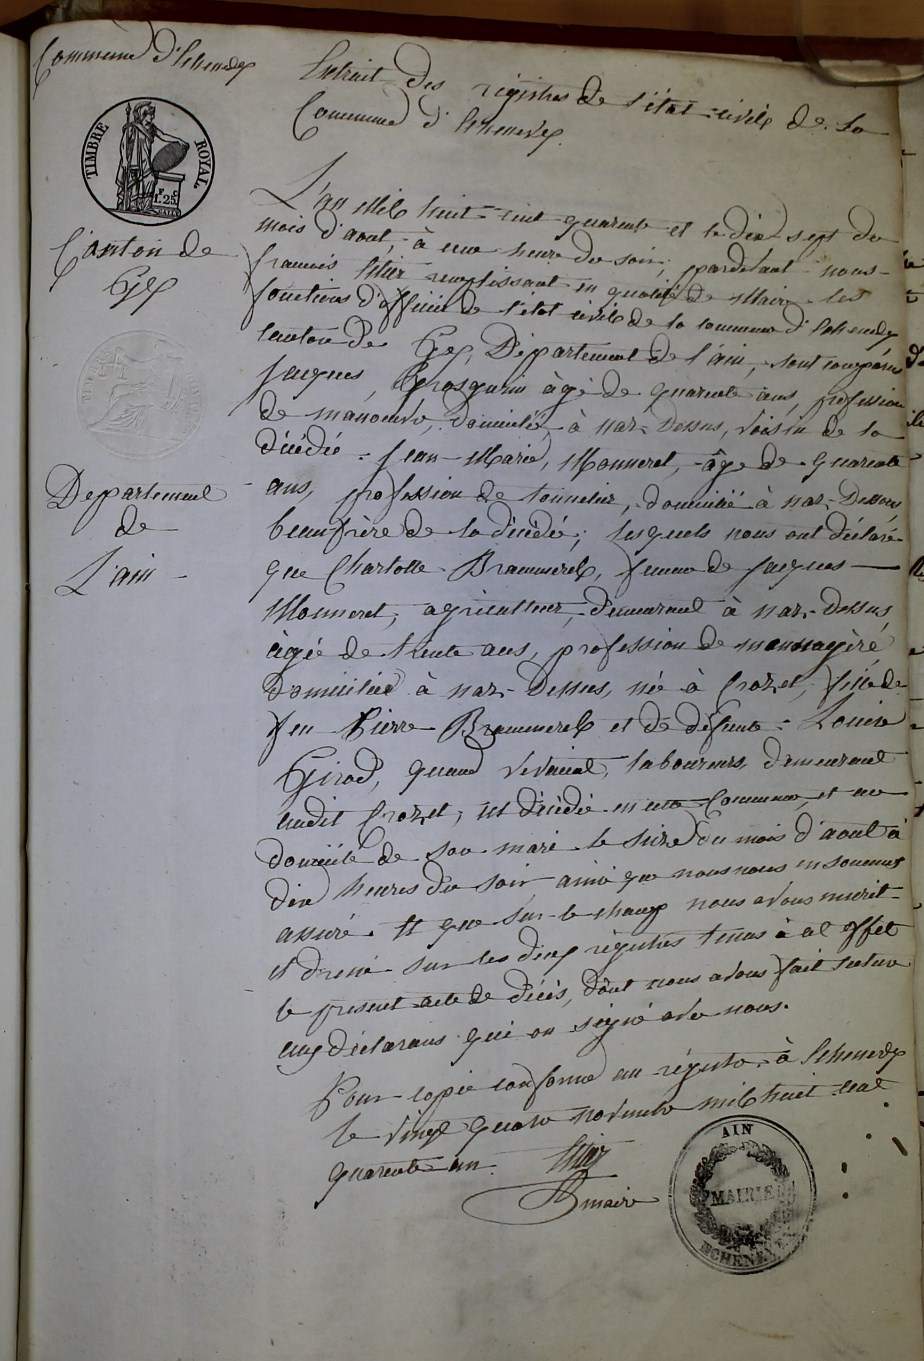 Commune d'Echenevex
Extrait des régistres de l'état-civil de la
Commune d'Echenevex.
TIMBRE ROYAL.
1 F. 25 C.
Canton de
Gex
Departement
de
L'ain
L'an Mil huit-cent quarante et le dix sept du
mois d'aout, à une heure du soir, pardevant nous
francois remplissant en qualité de Maire les
fonctions d'officier de l'état civil de la commune d'Echenevex
canton de Gex, Département de l'ain, sont comparus
Jacques Grosgurin âgé de quarante ans, profession
de manoeuvre, domicilié à naz-Dessus, voisin de la
décédée. Jean-Marie, Monneret, âge de quarante
ans, profession de tonnelier, domicilié à naz-Dessus,
beaufrère de la décédé, lesquels nous ont déclaré
que Charlotte Brammerel, femme de Jacques
Monneret, agriculteur, demeurant à naz-Dessus,
âgée de trente ans, profession de mennagère,
domiciliée à naz-Dessus, née à Crozet, fille de
feu Pierre Brammerel et de défunte Louise
Girod, quand vivaient, laboureurs, demeurant
audit Crozet, est décédée en cette Commune, et au
domicile de son mari le seize du mois d'aout à
dix heures du soir, ainsi que nous nous en sommes
assuré. Et que sur-le champ nous avons inscrit
et dressé sur les deux régistres tenus à cet effet
le présent acte de décès, dont nous avons fait lecture
aux déclarans qui on signé avec nous.
Pour copie conforme au régistre à Echenevex
le vingt quatre novembre mil huit cent
quarante un.
maire
AIN
MAIRIE
ECHENEVEX